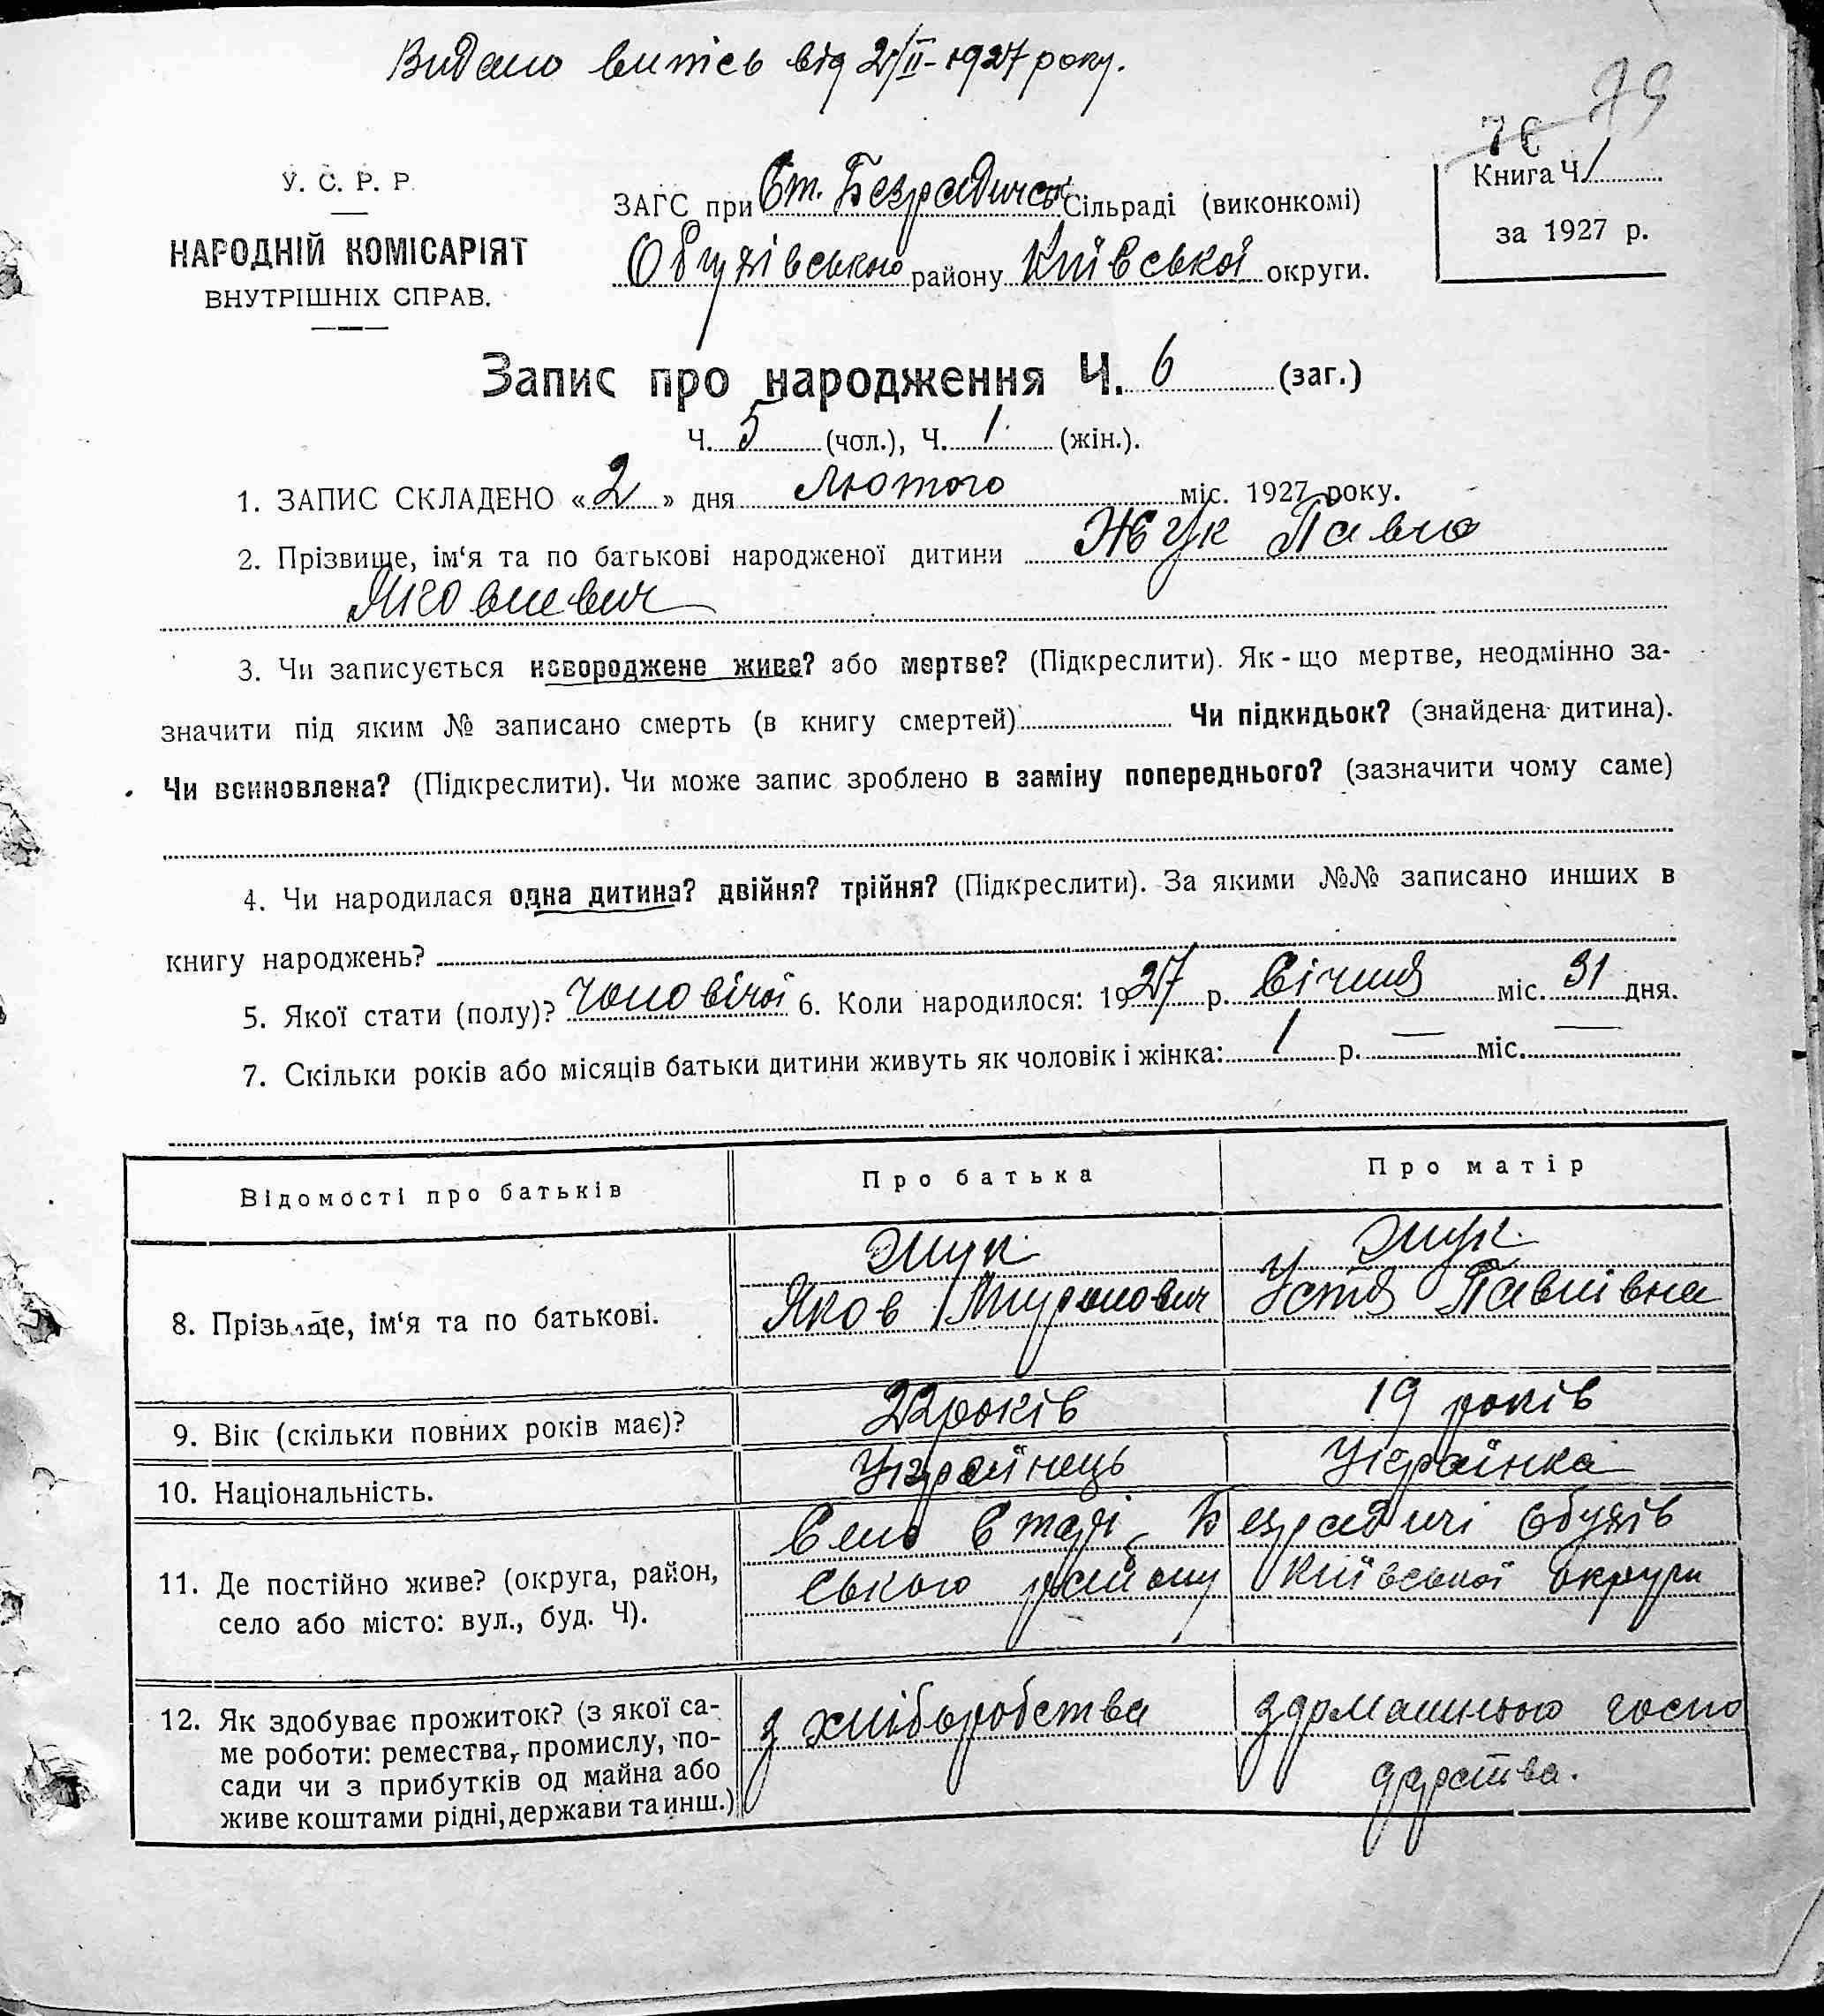 Видано витісь від 2/II-1927 року.
79
76
У. С. Р. Р.
НАРОДНІЙ КОМІСАРІЯТ
ВНУТРІШНІХ СПРАВ.
ЗАГС при Ст. Безрадичс Сільраді (виконкомі)
Обухівського району Київської округи.
Книга Ч. 1
за 1927 р.
Запис про народження Ч. 6 (заг.)
Ч. 5 (чол.), Ч. 1 (жін.).
1. ЗАПИС СКЛАДЕНО «2» дня Лютого міс. 1927 року.
2. Прізвище, ім‘я та по батькові народженої дитини Жук Павло
Яковлевич
3. Чи записується новороджене живе? або мертве? (Підкреслити). Як-що мертве, неодмінно за-
значити під яким № записано смерть (в книгу смертей) Чи підкидьок? (знайдена дитина).
Чи всиновлена? (Підкреслити). Чи може запис зроблено в заміну попереднього? (зазначити чому саме)
4. Чи народилася одна дитина? двійня? трійня? (Підкреслити). За якими №№ записано инших в
книгу народжень?
5. Якої стати (полу)? Чоловічої 6. Коли народилося: 1927 р. Січня міс. 31 дня.
7. Скільки років або місяців батьки дитини живуть як чоловік і жінка: 1 р. — міс. —
Відомості про батьків Про батька Про матір
8. Прізвище, ім‘я та по батькові.
Жук Жук.
Яков Миронович Устя Павлівна
9. Вік (скільки повних років має)? 22 років 19 років
10. Національність. Українець Українка
11. Де постійно живе? (округа, район,
село або місто: вул., буд. Ч).
Село Старі Безрадичі Обухів
ського району Київської округи
12. Як здобуває прожиток? (з якої са-
ме роботи: ремества, промислу, по-
сади чи з прибутків од майна або
живе коштами рідні, держави та инш.)
з хліборобства
з домашнього госпо
дарства.